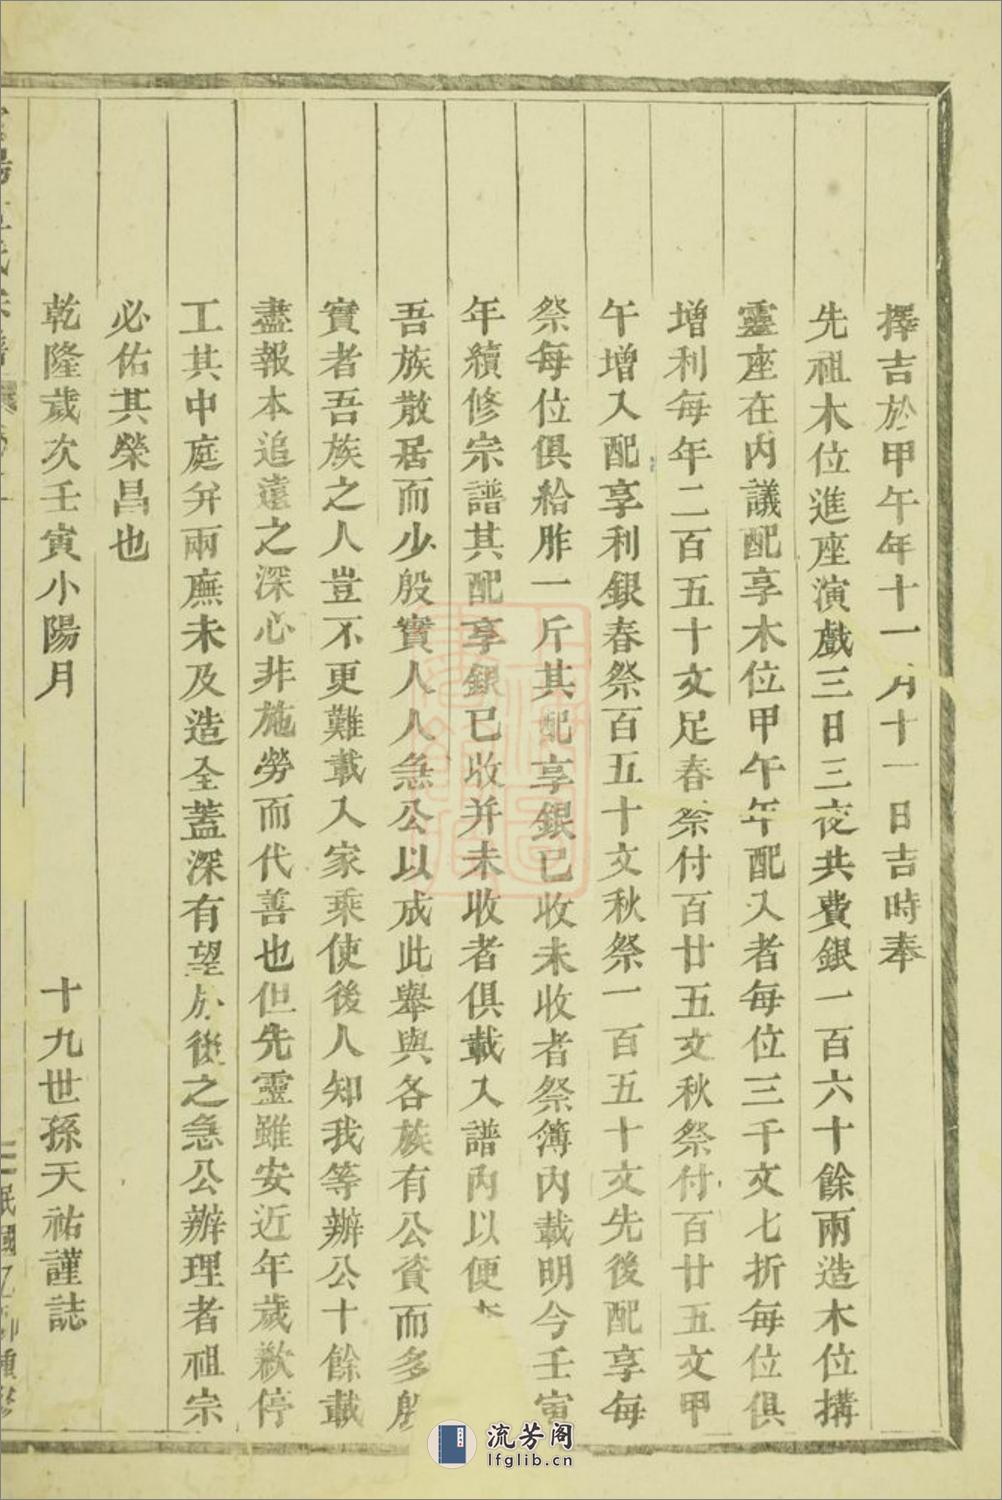 擇吉於甲午年十一月十一日吉時奉
先祖木位進座演戲三日三夜共費銀一百六十餘兩造木位搆
靈座在內議配享木位甲午年配入者每位三千文七折每位俱
增利每年二百五十文足春祭付百廿五文秋祭付百廿五文甲
午增入配享利銀春祭百五十文秋祭一百五十文先後配享每
祭每位俱給胙一斤其配享銀已收未收者祭簿內載明今壬寅
年續修宗譜其配享銀已收并未收者俱載入譜內以便
吾族散居而少殷實人人急公以成此舉與各族有公資而多殷
實者吾族之人豈不更難載入家乘使後人知我等辦公十餘載
盡報本追遠之深心非施勞而代善也但先靈雖安近年歲歉停
工其中庭并兩廡未及造全蓋深有望於後之急公辦理者祖宗
必佑其榮昌也
乾隆歲次壬寅小陽月 十九世孫天祐謹誌
民國乙卯重修
流芳阁
lfglib.cn